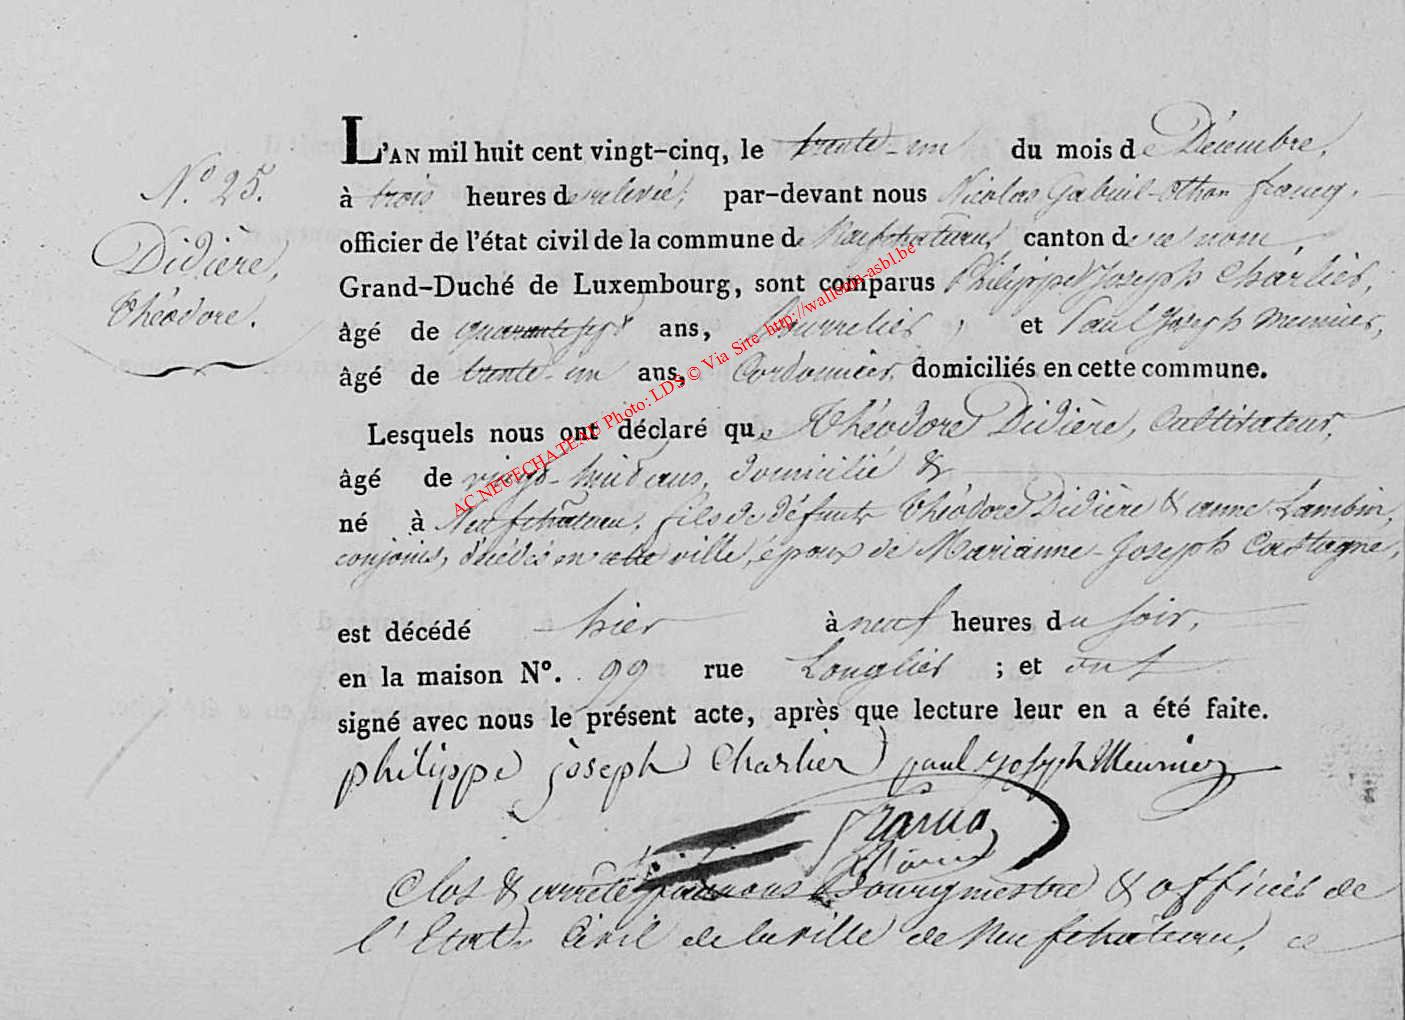 N.º 25.
Didière,
Théodore.
L'AN mil huit cent vingt-cinq, le trente-un du mois de Décembre,
à trois heures de relevée, par-devant nous Nicolas Gabriel-Othon francq,
officier de l'état civil de la commune de Neufchateau, canton de ce nom,
Grand-Duché de Luxembourg, sont comparus Philippe Joseph Charlier,
âgé de quarante sept ans, Bourrelier, et Paul Joseph Meunier,
âgé de trente-un ans, Cordonnier, domiciliés en cette commune.
Lesquels nous ont déclaré que Théodore Didière, Cultivateur,
âgé de vingt-huit ans, domicilié &
né à Neufchâteau, fils de défunts Théodore Didière & anne Lambin,
conjoints, décédés en cette ville, époux de Marianne-Joseph Castagne,
est décédé hier à neuf heures du soir,
en la maison Nº. 99 rue Longlier ; et ont
signé avec nous le présent acte, après que lecture leur en a été faite.
philippe joseph Charlier paul joseph Meunier
francq
Clos & arrêté par nous Bourgmestre & officier de
l'Etat Civil de la ville de Neufchâteau, ce
AC NEUFCHATEAU Photo: LDS © Via Site http://wallonia-asbl.be